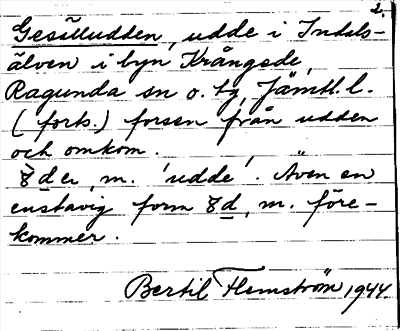 2.
Gesälludden, udde i Indals-
älven i byn Krångede,
Ragunda sn o. tg, Jämtl. l.
(forts.) forsen från udden
och omkom.
der, m. 'udde'. Även en
enstavig form d, m. före-
kommer.
Bertil Flemström 1944.